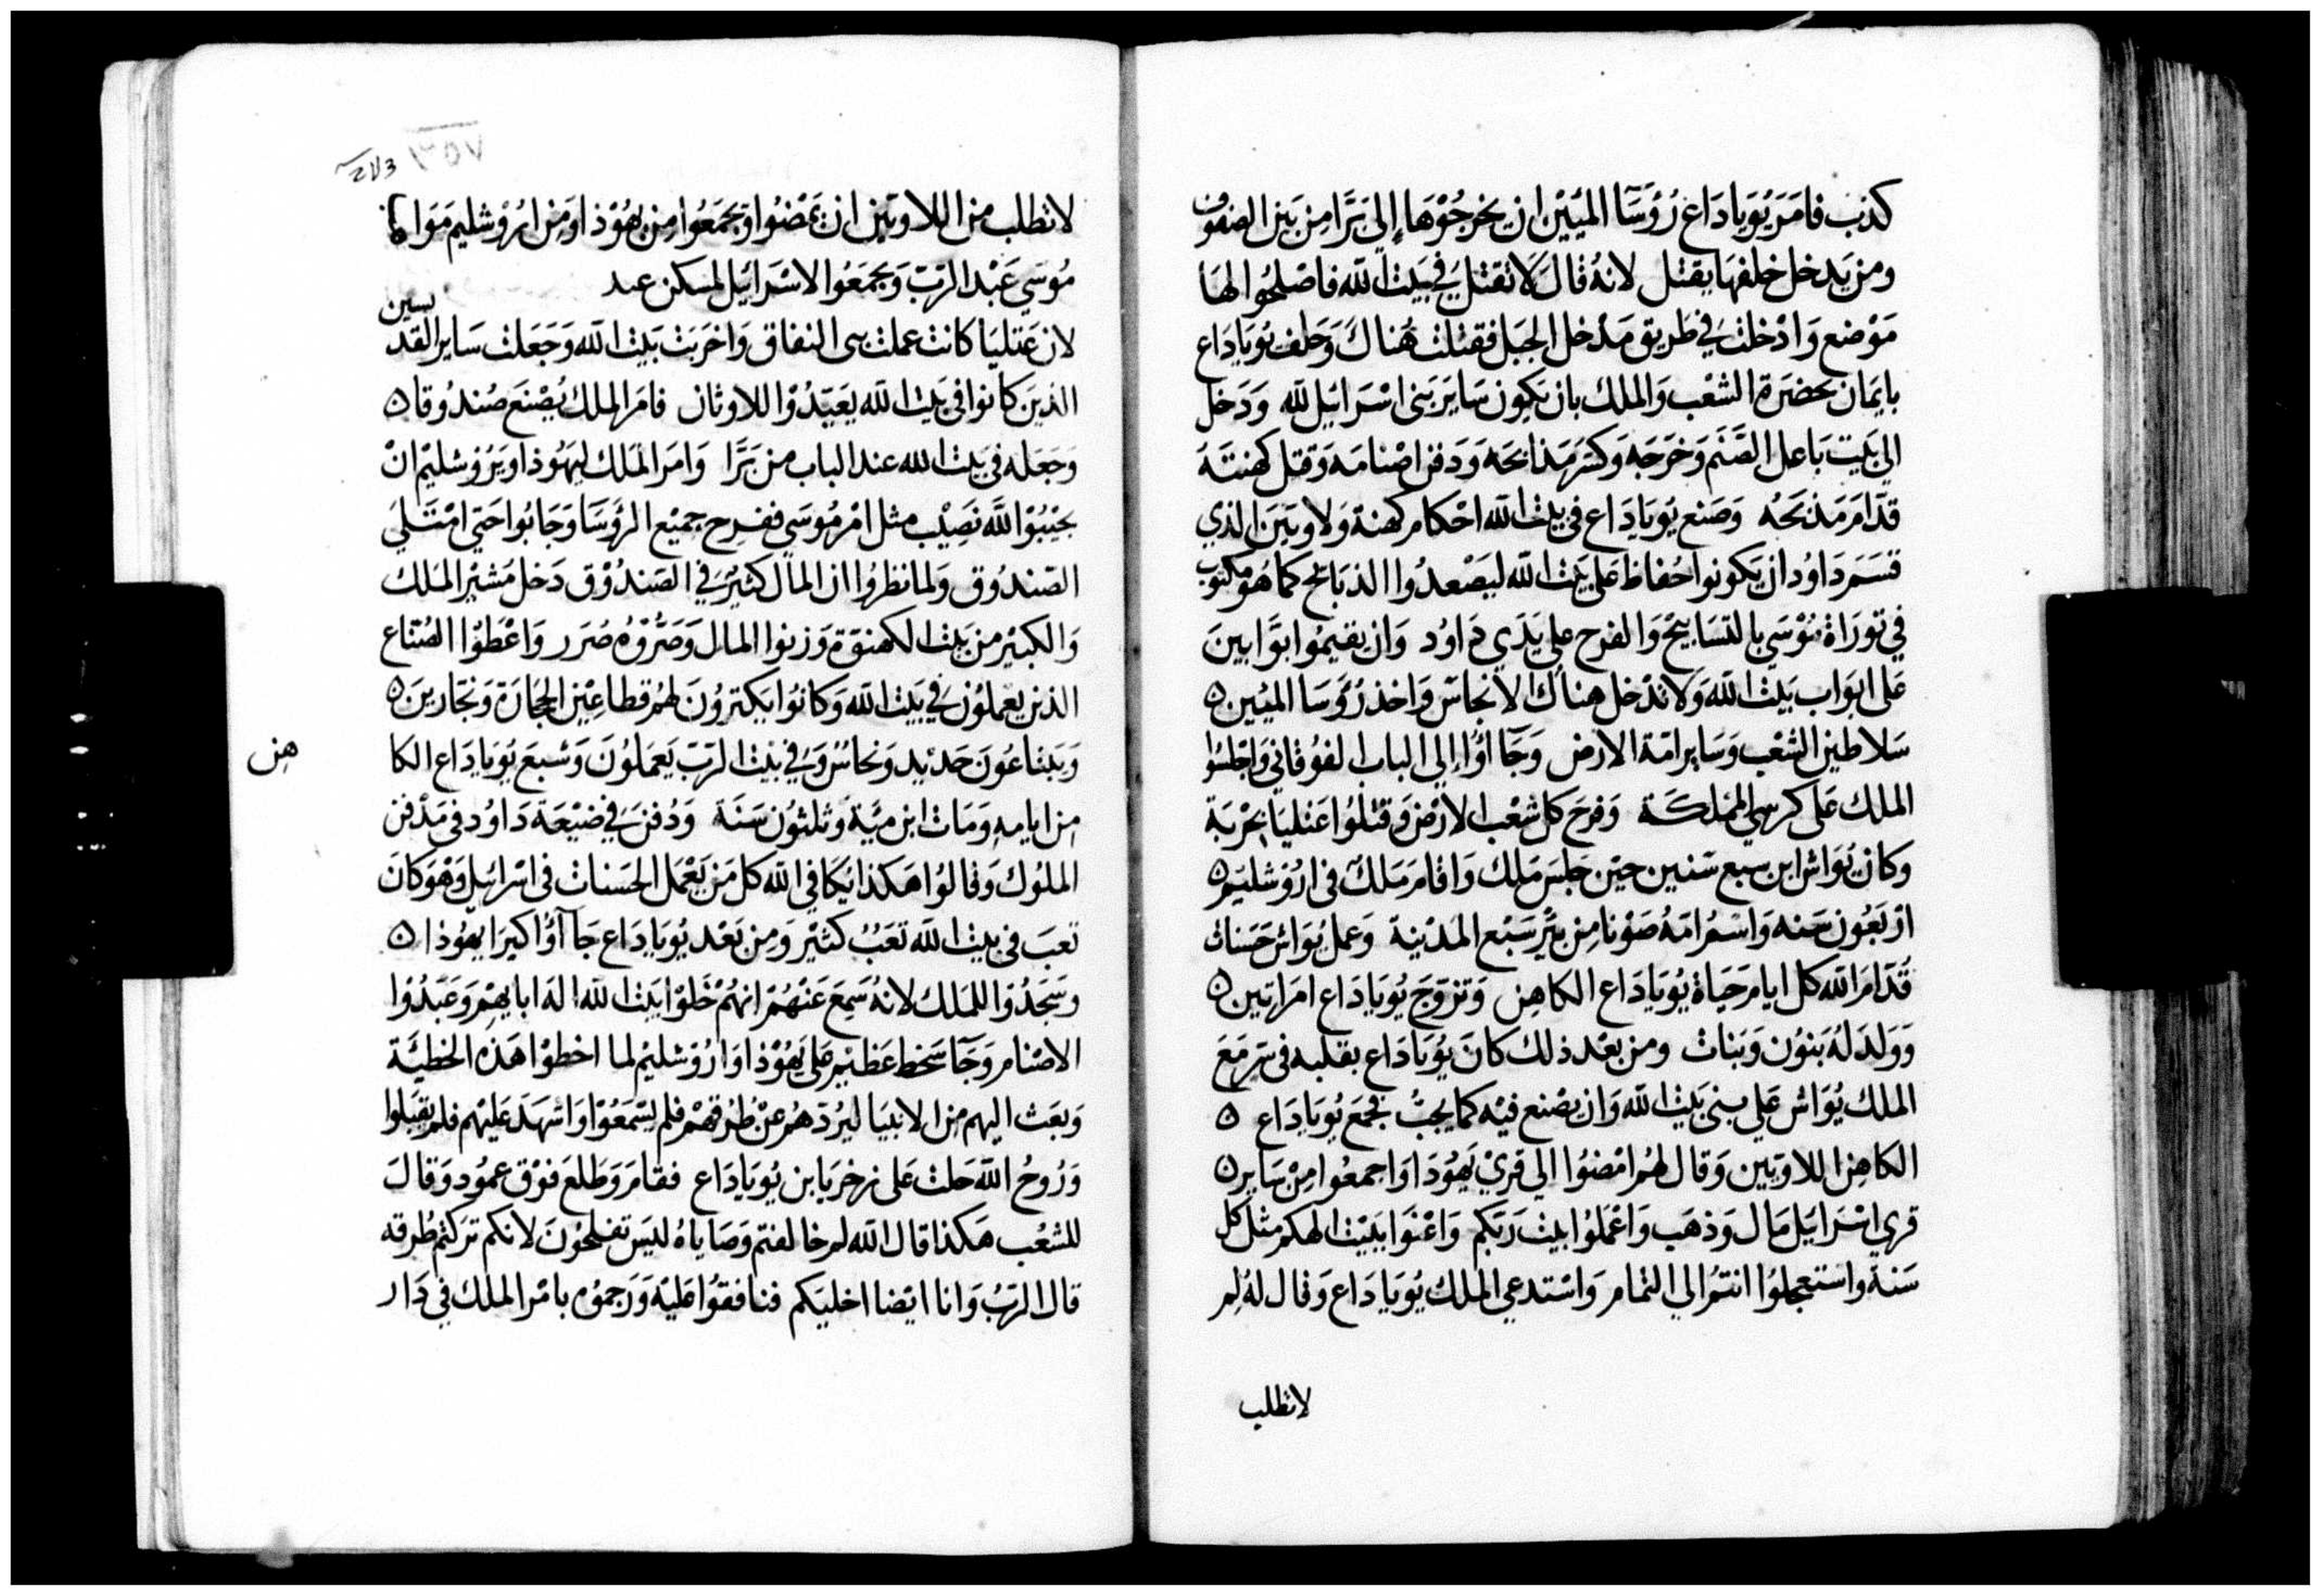 كدب فامَرَ يُويَادَاع رُؤسَا الميّيْن ان يخرجُوْهَا إلى بَرَّا مِن بَين الصفوف
ومن يَدخل خلفهَا يقتل لانهُ قالَ لَا تقتل فِي بَيْت الله فاصْلحُوا لهَا
مَوْضع وَادْخلت فِي طَريق مَدْخل الجبَل فقتلت هُناكَ وَحَلف يُويَادَاع
بايمَان بحضَرة الشعْب وَالملك بان يَكون سَاير بَنى اسْرَائيل لله وَدَخل
الى بَيت بَاعل الصَّنَم وَخرَجَه وَكسَرَ مَذابحَه وَدَفن اصْنامَه وَقتل كهنتَهُ
قدَّامَ مَذبَحَهُ وَصَنع يُويَادَاع فى بَيْت الله احْكام كهنة وَلاويَين الذي
قسَمَ دَاوُد ان يَكونوا حُفاظ عَلى بَيْت الله ليَصْعدُوا الذبَايح كما هُو مكتوب
في تورَاة مُوْسَي بالتسَابيحْ وَالفرح على يَدَي دَاوُد وَان يقيمُوا بَوَّابينَ
عَلى ابوَاب بَيْت الله وَلا تدْخل هناك الانجاسْ وَاخذ رُؤسَا الميُين ٥
سَلاطين الشعْب وَسَاير امّة الارض وَجَآاؤُا إلى الباب الفوُقاني وَاجْلسُوا
الملك عَلى كرسي الممْلكَة وَفرحَ كل شعْب الارْض وَقتلوُا عَتليَا بحَرْبَة
وكان يُوَاش ابن سبع سَنين حيْن جَلسَ مَلِك وَاقامَ مَلكَ فى ارُوْشليَم ٥
ارْبعُون سَنه وَاسْم امّهُ صَوْنا مِن بئر سَبْع المدْينة وَعمل يُوَاش حَسَنات
قُدّامَ الله كل ايام حَيَاة يُويَادَاع الكاهِن وَتزوَّجَ يُويَادَاع امرَاتين ٥
وَوَلدَ لهُ بَنوُن وَبَنات ومن بعْد ذلك كانَ يُويَادَاع بقلبه فى سَرّ مَعَ
الملك يُوَاش عَلي بنى بَيْت الله وَان يصْنع فيْه كما يجبُ فجمَع يُويَادَاع ٥
الكاهِن اللاويّين وَقال لهُم امْضُوا الى قريْ يَهُوَدَا وَاجمعُوا مِنْ سَاير ٥
قري اسْرَايَل مَال وَذهَب وَاعْمَلوُا بيْت رَبّكم وَاعْتنَوا ببَيْت الهكم مثل كل
سَنة واستعجلوُا انتمُ الى التمام وَاسْتدعي الملك يُويَادَاع وَقال لهُ لِمَ
لاتطلب
لاتطلب من اللاويَين ان يمَضُوا وَيجمَعُوا مِن يهُوْذا وَمِن ارُوْشليم
مُوسَي عَبْد الرَبّ وَيجمَعُوا الاسْرَائيل لمسكن
لان عَتليَا كانت عملت النفاق وَاخرَبَت بَيْت الله وَجَعَلت سَاير القدسين
الذيَن كانوا فى بَيْت الله يعَبّدُوْا للاوثان فامَر الملك يُصْنَع صُندُوقا ٥
وَجَعَله فى بَيْت الله عند الباب من بَرَّا وَامَر الملك ليهَوُذا وَيَروُشليْم انْ
يجيْبُوْا للَّه نَصِيْب مثل امْر مُوسَي ففرِح جميْع الرؤسَا وَجَابُوا حَتي امْتَلي
الصّندُوق وَلما نظرُوا ان المال كثيْرَ فِي الصّندُوْق دَخل مَشيْر الملك
وَالكبيْر من بَيْت الكهنوَة وَزنوا المال وَصَرُّوهُ صُرَر وَاعْطوْا الصُنّاع
الذين يَعْملوُن فِي بَيْت الله وَكانوُا يَكترُونَ لهُم قطاعِيْن الحجَارَة وَنجّارينَ ٥
وَيبْتاعُونَ حَديْد وَنحاسْ وَفي بَيْت الرَبّ يَعمَلوُنَ وَشبعَ يُويَادَاع الكا
هن
مِن ايامهِ وَمَات ابن ميَّة وَثلثوُن سَنَة وَدُفنَ فِي ضيْعَة دَاوُد فى مَدْفن
الملوُك وَقالوُا هَكذا يُكَافي الله كل مَن يَعْمل الحَسَنات فى اسْرائيل وَهُوَ كان
تعبَ فى بيْت الله تعَبٌ كثيْر وَمن بَعْد يُويَادَاع جَاآؤُا كبرَا يهوُذا ٥
وسَجَدُوْا للملك لانهُ سَمِعَ عَنْهُمْ انهُمْ خَلوْا بَيْت الله اله ابايهِمْ وَعَبَدُوْا
الاصْنام وَجَآ سَخط عَظيْم عَلى يَهُوْذا وَاروُشليْم لما اخطوْا هَذه الخطيَّة
وَبعَث اليهم من الانبيَا ليُردَّ هُم عنْ طُرقهمْ فلم يسْمَعُوْا وَاشهَدَ عَليْهم فلم يقبَلوا
وَرُوحُ الله حَلت عَلى زخريَا بن يُويَادَاع فقامَ وَطَلعَ فوْق عمُود وَقالَ
للشعْب هَكذا قال الله لم خالفتم وَصَايَاهُ ليَس تفلحُوْنَ لانكم ترَكتم طُرقه
قال الرَبُ وَانا ايْضا اخليكم فنافقوُا عَليْه وَرَجمُوْه بامْر الملك فِي دَار